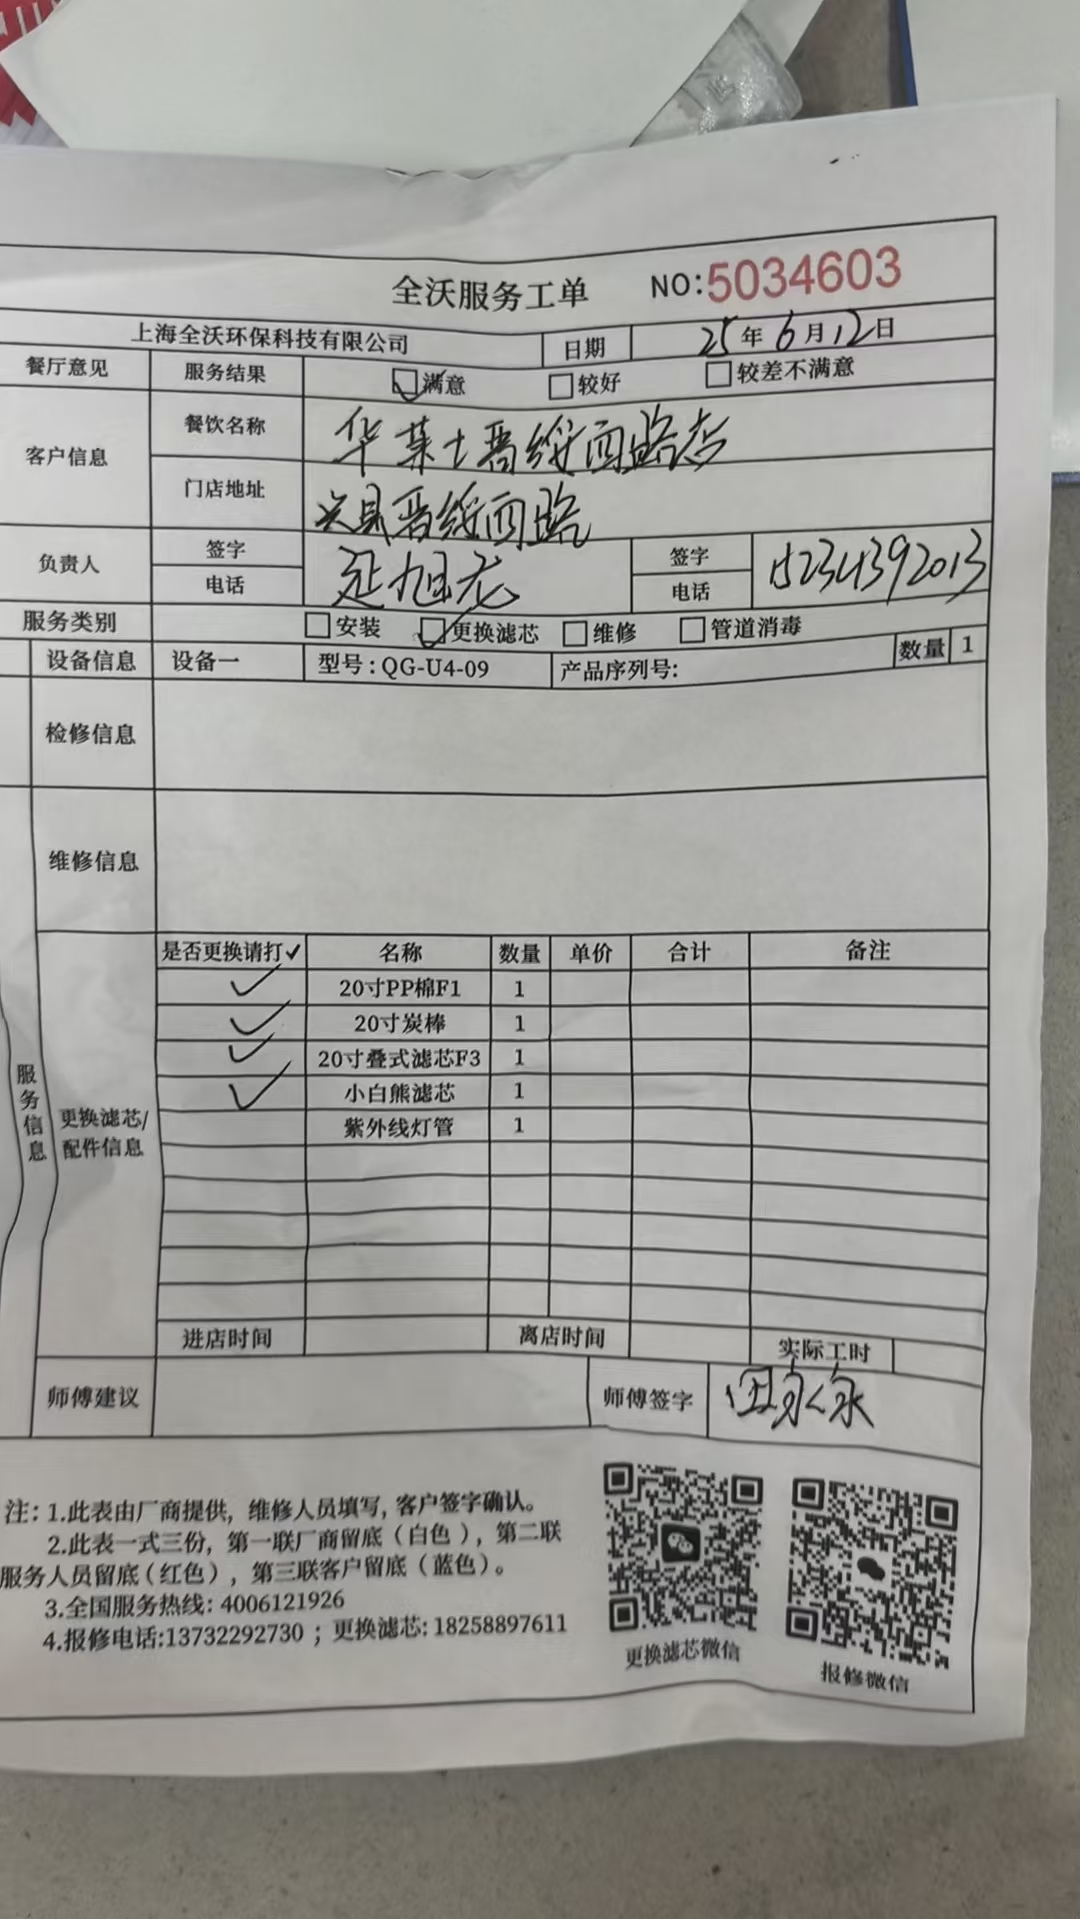 全沃服务工单 NO:5034603
上海全沃环保科技有限公司 日期 25年6月12日
餐厅意见 服务结果 满意 较好 较差不满意
客户信息 餐饮名称 华莱士晋绥西路店
门店地址 兴县晋绥西路
负责人 签字 延旭龙 签字
电话 电话 15234392013
服务类别 安装 更换滤芯 维修 管道消毒
设备信息 设备一 型号:QG-U4-09 产品序列号: 数量 1
检修信息
维修信息
服务信息
更换滤芯/
配件信息
是否更换请打✓ 名称 数量 单价 合计 备注
✓ 20寸PP棉F1 1
✓ 20寸炭棒 1
✓ 20寸叠式滤芯F3 1
✓ 小白熊滤芯 1
紫外线灯管 1
进店时间 离店时间 实际工时
师傅建议 师傅签字
注: 1.此表由厂商提供, 维修人员填写, 客户签字确认。
2.此表一式三份, 第一联厂商留底(白色), 第二联
服务人员留底(红色), 第三联客户留底(蓝色)。
3.全国服务热线: 4006121926
4.报修电话:13732292730 ; 更换滤芯: 18258897611
更换滤芯微信
报修微信